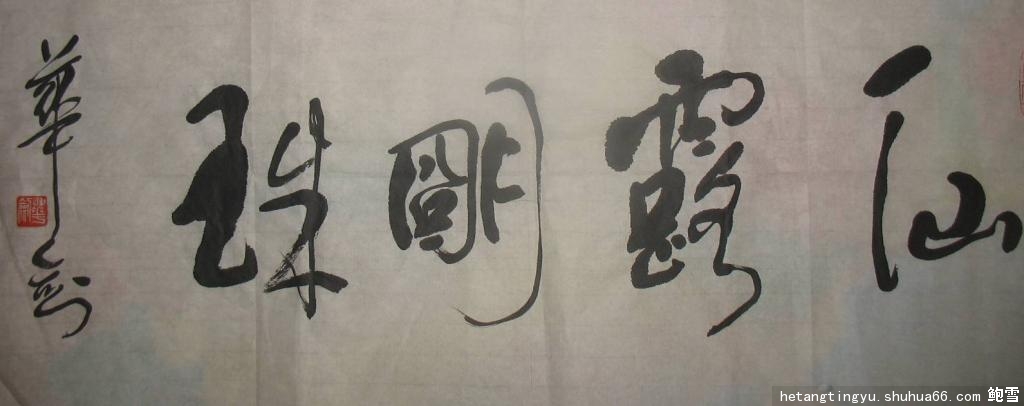 仙露明珠
華剑
hetangtingyu.shuhua66.com 鲍雪